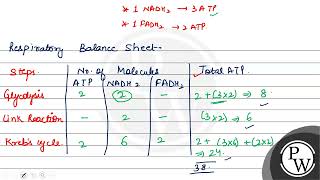 * 1 NADH₂ → 3 ATP
* 1 FADH₂ → 2 ATP
Respiratory Balance Sheet-
Steps No. of Molecules Total ATP.
ATP NADH₂ FADH₂
Glycolysis 2 2 - 2 + (3×2) ⇒ 8
Link Reaction - 2 - (3×2) ⇒ 6
Kreb's cycle 2 6 2 2 + (3×6) + (2×2)
⇒ 24
38
PW